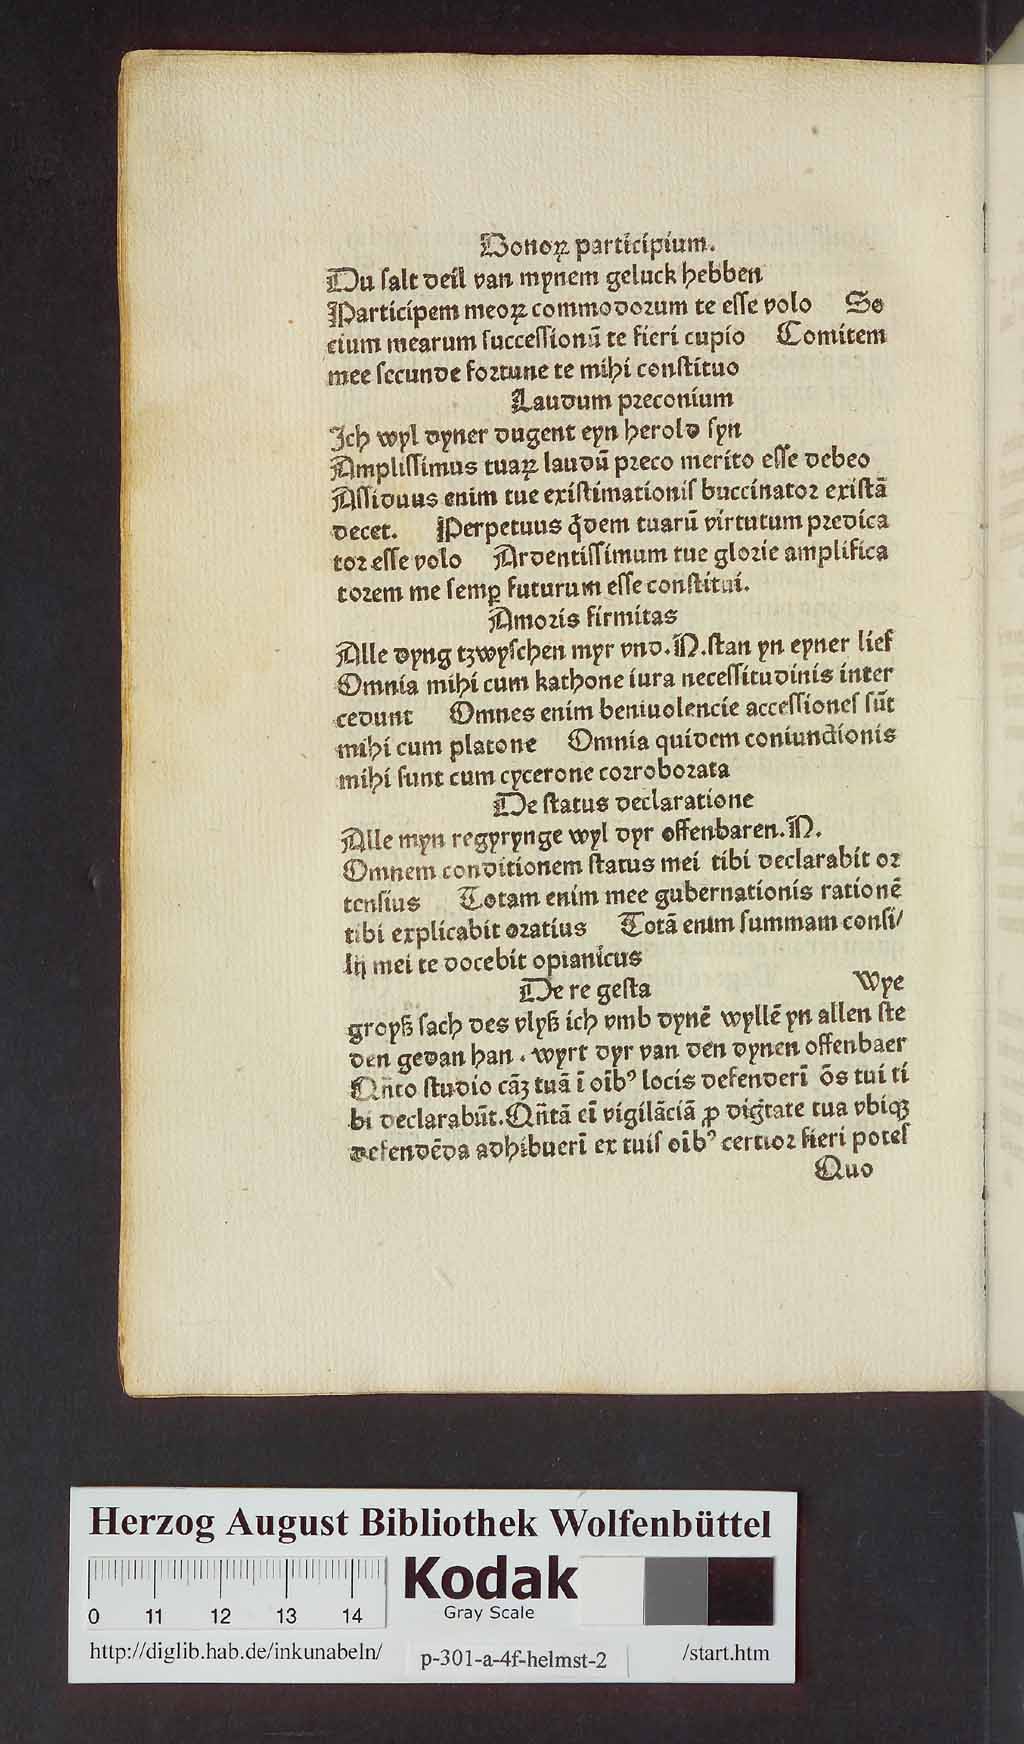 Bonoꝝ participium.
Du salt deil van mynem geluck hebben
Participem meoꝝ commodorum te esse volo So
cium mearum successionū te fieri cupio Comitem
mee secunde fortune te mihi constituo
Laudum preconium
Ich wyl dyner dugent eyn herold syn
Amplissimus tuaꝝ laudū preco merito esse debeo
Assiduus enim tue existimationis buccinator existā
decet. Perpetuus q̄dem tuarū virtutum predica
tor esse volo Ardentissimum tue glorie amplifica
torem me semꝑ futurum esse constitui.
Amoris firmitas
Alle dyng tzwyschen myr vnd. N. stan yn eyner lief
Omnia mihi cum kathone iura necessitudinis inter
cedunt Omnes enim beniuolencie accessiones sūt
mihi cum platone Omnia quidem coniunctionis
mihi sunt cum cycerone corroborata
De status declaratione
Alle myn regyrynge wyl dyr offenbaren. N.
Omnem conditionem status mei tibi declarabit or
tensius Totam enim mee gubernationis rationē
tibi explicabit oratius Totā enim summam consi/
lij mei te docebit opianicus
De re gesta Wye
groyß sach des vlyß ich vmb dynē wyllē yn allen ste
den gedan han. wyrt dyr van den dynen offenbaer
Qn̄to studio cāꝫ tuā ī oīb⁹ locis defenderī ōs tui ti
bi declarabūt. Qn̄tā eī vigilāciā ꝓ diḡtate tua vbiqꝫ
defendēda adhibuerī ex tuis oīb⁹ certior fieri potes
Quo
Herzog August Bibliothek Wolfenbüttel
Kodak
Gray Scale
0 11 12 13 14
http://diglib.hab.de/inkunabeln/ p-301-a-4f-helmst-2 /start.htm